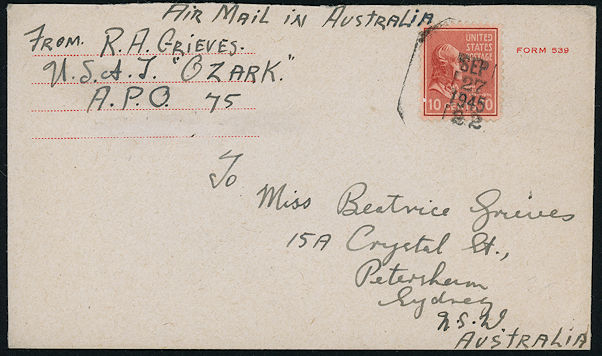 AIR MAIL IN AUSTRALIA
FROM. R.A. GRIEVES.
U.S.A.T. "OZARK."
A.P.O. 75
UNITED
STATES
POSTAGE
10
FORM 539
SEP
27
1945
To
Miss Beatrice Grieves
15A Crystal St.,
Petersham
Sydney
N.S.W.
AUSTRALIA